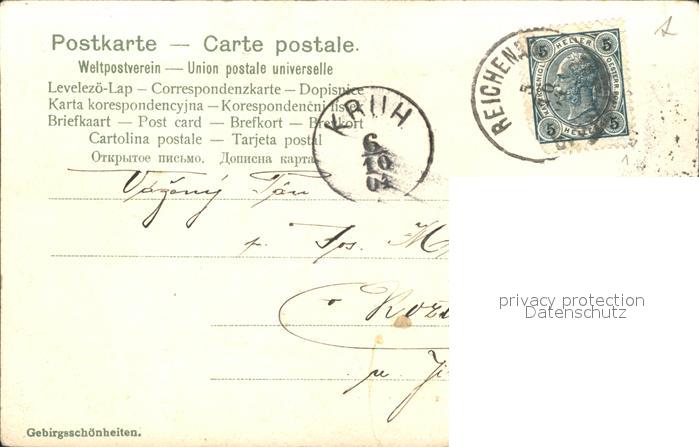 Postkarte — Carte postale.
Weltpostverein — Union postale universelle
Levelezö-Lap — Correspondenzkarte — Dopisnice
Karta korespondencyjna — Korespondenční lístek
Briefkaart — Post card — Brefkort — Brevkort
Cartolina postale — Tarjeta postal
Открытое письмо. Дописна карта
REICHENA
5 HELLER 5
5 HELLER 5
KRUH
6
10
04
Vážený Pán
p. Jos. M
v Roz
u Ji
privacy protection
Datenschutz
Gebirgsschönheiten.